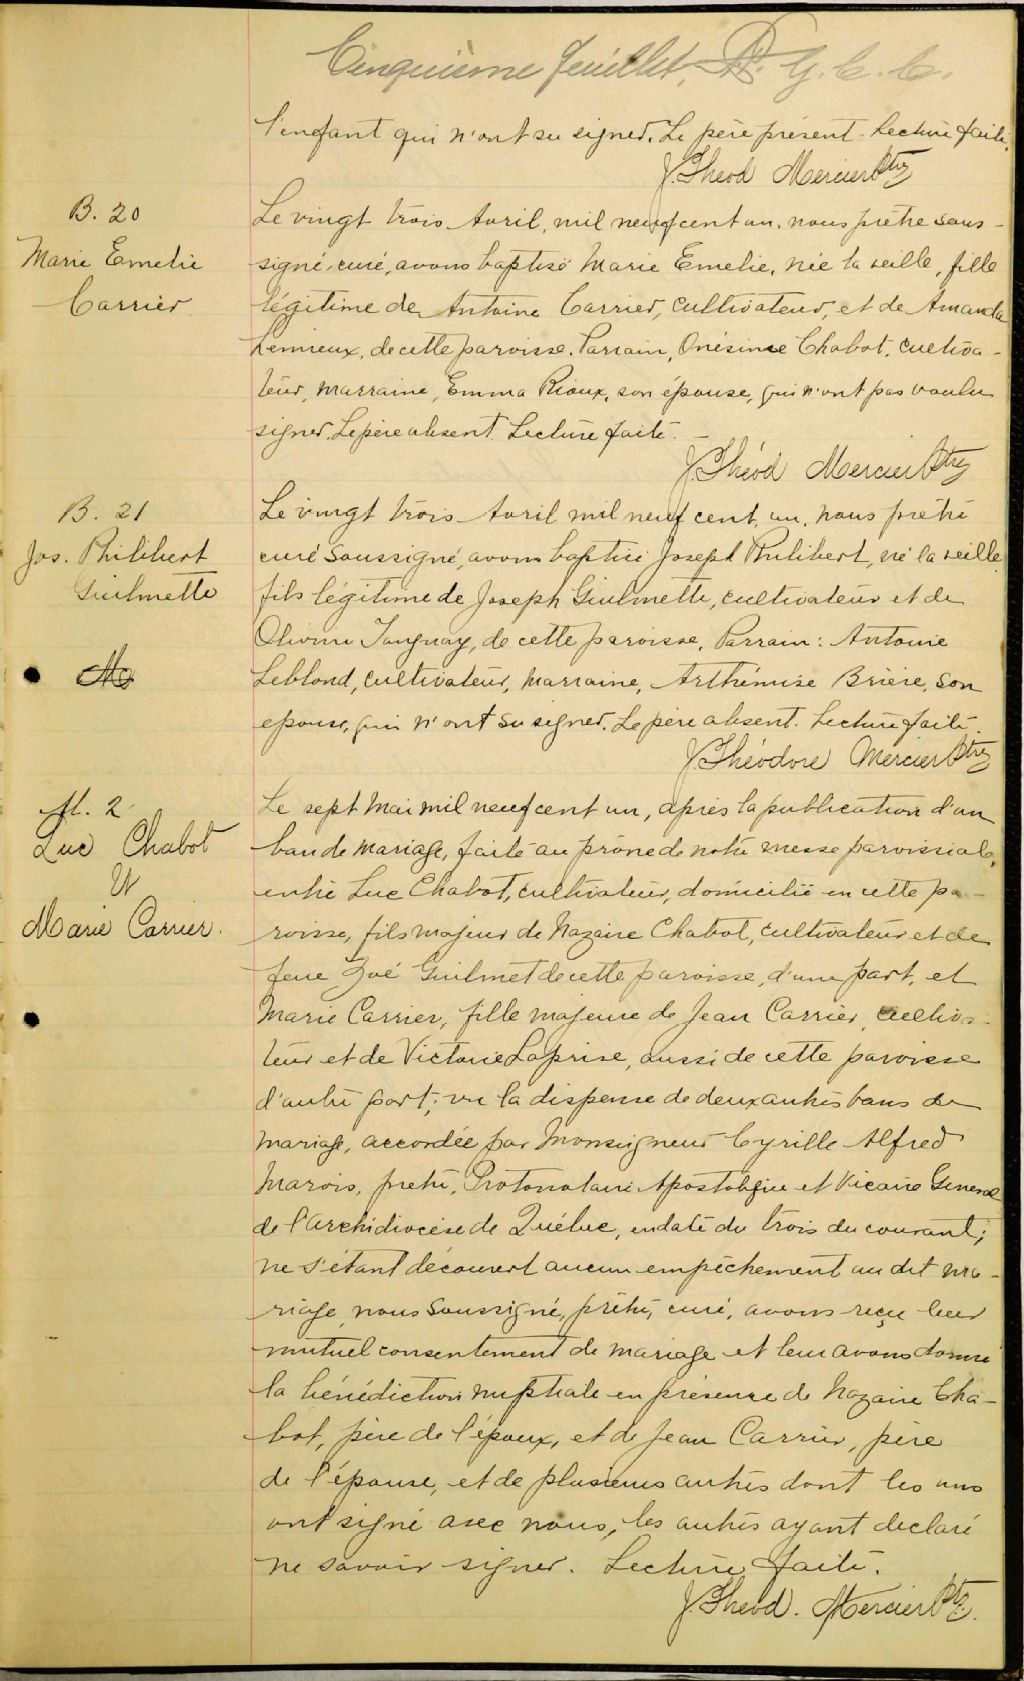 Cinquième feuillet, P. G. C. C.
l'enfant qui n'ont su signer. Le père présent. Lecture faite.
J. Théod Mercier Ptre
B. 20
Marie Emelie
Carrier
Le vingt trois Avril, mil neuf cent un, nous prêtre sous-
signé, curé, avons baptisé Marie Emelie, née la veille, fille
légitime de Antoine Carrier, cultivateur, et de Amanda
Lemieux, de cette paroisse. Parrain, Onésime Chabot, cultiva-
teur, marraine, Emma Rioux, son épouse, qui n'ont pas voulu
signer. Le père absent. Lecture faite.
J. Théod Mercier Ptre
B. 21
Jos. Philibert
Guilmette
Le vingt trois Avril mil neuf cent, un, nous prêtre
curé soussigné, avons baptisé Joseph Philibert, né la veille,
fils légitime de Joseph Guilmette, cultivateur et de
Olivine Tanguay, de cette paroisse, Parrain: Antoine
Leblond, cultivateur, marraine, Arthémise Brière, son
epouse, qui n'ont su signer. Le père absent. Lecture faite.
J. Théodore Mercier Ptre
M. 2
Luc Chabot
&
Marie Carrier.
Le sept Mai mil neuf cent un, après la publication d'un
ban de mariage, faite au prône de notre messe paroissiale,
entre Luc Chabot, cultivateur, domicilié en cette pa-
roisse, fils majeur de Nazaire Chabot, cultivateur et de
feue Zoé Guilmet de cette paroisse, d'une part, et
Marie Carrier, fille majeure de Jean Carrier, cultiva-
teur et de Victorie Laprise, aussi de cette paroisse
d'autre part; vu la dispense de deux autres bans de
mariage, accordée par Monseigneur Cyrille Alfred
Marois, prêtre, Protonotaire Apostolique et Vicaire Général
de l'Archidiocèse de Québec, en date du trois du courant;
ne s'étant découvert aucun empêchement au dit ma-
riage, nous soussigné, prêtre, curé, avons reçu leur
mutuel consentement de mariage et leur avons donné
la bénédiction nuptiale en présence de Nazaire Cha-
bot, père de l'époux, et de Jean Carrier, père
de l'épouse, et de plusieurs autres dont les uns
ont signé avec nous, les autres ayant declaré
ne savoir signer. Lecture faite.
J. Théod. Mercier Ptre.